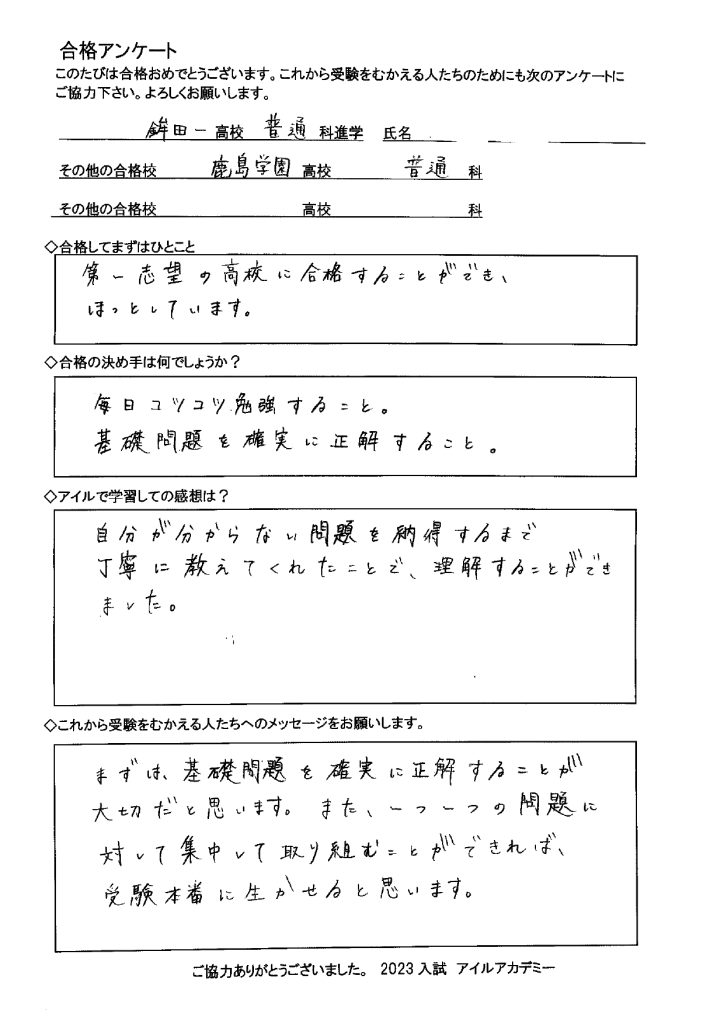 合格アンケート
このたびは合格おめでとうございます。これから受験をむかえる人たちのためにも次のアンケートに
ご協力下さい。よろしくお願いします。
鉾田一 高校 普通 科進学 氏名
その他の合格校 鹿島学園 高校 普通 科
その他の合格校 高校 科
◇合格してまずはひとこと
第一志望の高校に合格することができ、
ほっとしています。
◇合格の決め手は何でしょうか?
毎日コツコツ勉強すること。
基礎問題を確実に正解すること。
◇アイルで学習しての感想は?
自分が分からない問題を納得するまで
丁寧に教えてくれたことで、理解することができ
ました。
◇これから受験をむかえる人たちへのメッセージをお願いします。
まずは、基礎問題を確実に正解することが
大切だと思います。また、一つ一つの問題に
対して集中して取り組むことができれば、
受験本番に生かせると思います。
ご協力ありがとうございました。 2023入試 アイルアカデミー